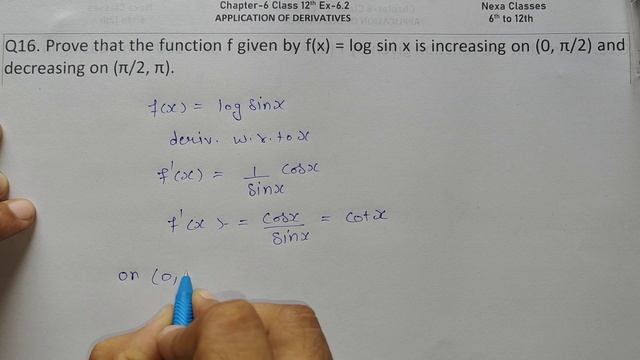 Chapter-6 Class 12th Ex-6.2
APPLICATION OF DERIVATIVES
Nexa Classes
6th to 12th
Q16. Prove that the function f given by f(x) = log sin x is increasing on (0, π/2) and
decreasing on (π/2, π).
f(x) = log sinx
deriv. w.r.to x
f'(x) = 1/sinx cosx
f'(x) = cosx/sinx = cotx
on (0,